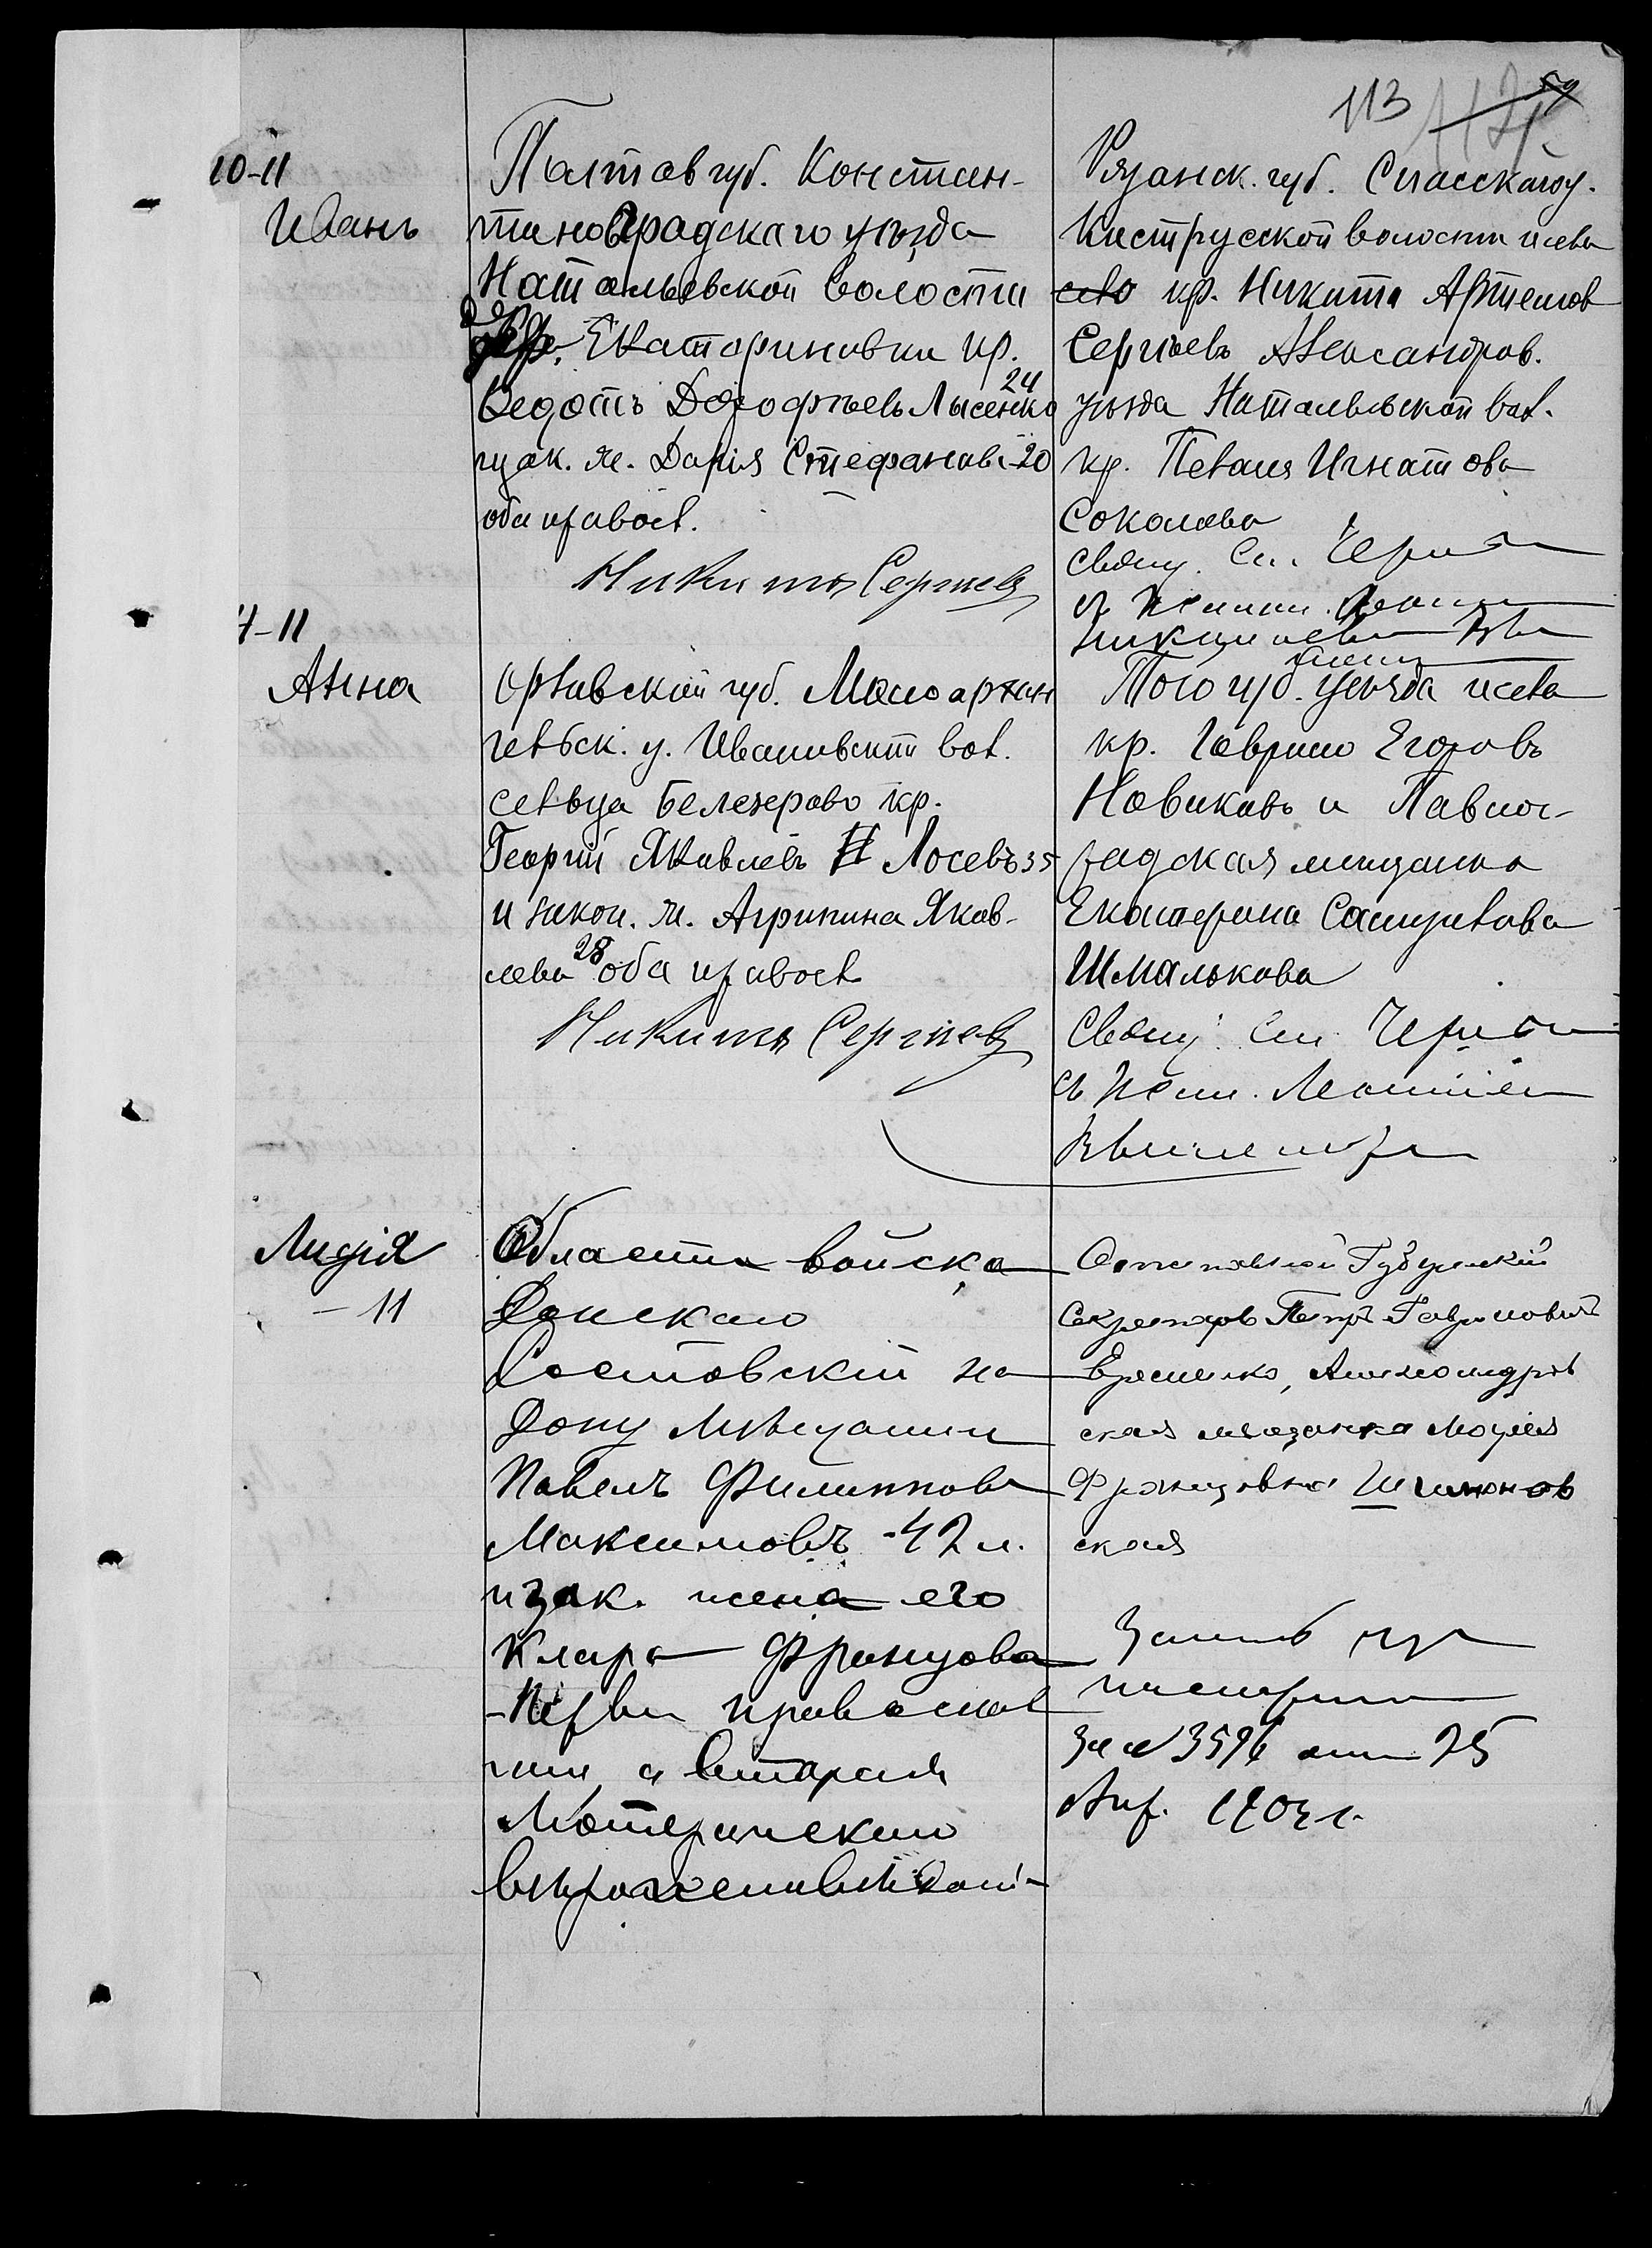 113
59
10-11
Иванъ
Полтав губ. Констан-
тиновградскаго уѣзда
Натальевской волости
дер. Екатериновки кр.
Ѳедотъ Дорофѣевъ Лысенко 24
и зак. ж. Дарія Стефанова 20
оба правосл.
Никита Сергѣевъ
Рязанск. губ. Спасскаго у.
Киструсской волости и села
село кр. Никита Артемов
Сергѣевъ Александров.
уѣзда Натальевской вол.
кр. Пелагея Игнатова
Соколова
Сверш. Св.
съ Псаломщ.
4-11
Анна
Орловской губ. Малоархан
гельск. у. Ивановской вол.
сельца Белозерово кр.
Георгій Яковлевъ Лосевъ 35
и закон. ж. Агрипина Яков-
лева 28 оба правосл.
Никита Сергѣевъ
Того губ. уѣзда и села
кр. Гаврило Егоровъ
Новиковъ и Павлог-
радская мещанка
Екатерина Самуилова
Шмалькова
Сверш. Св.
съ Псал.
Лидія
- 11
Области войска
Донскаго
Ростовскій на
Дону мѣщанин
Павелъ Филиппов
Максимовъ - 42 л.
и зак. жена его
Клара Францова
- Первый православ
ный, а вторая
Лютеранскаго
вѣроисповѣданія
Отставной Губернскій
Секретарь Петръ Гавриловичъ
Еременко, Александров
ская мѣщанка Марія
Францовна Шимонов
ская
за № 3596 отъ 25
Апр. 1704 г.